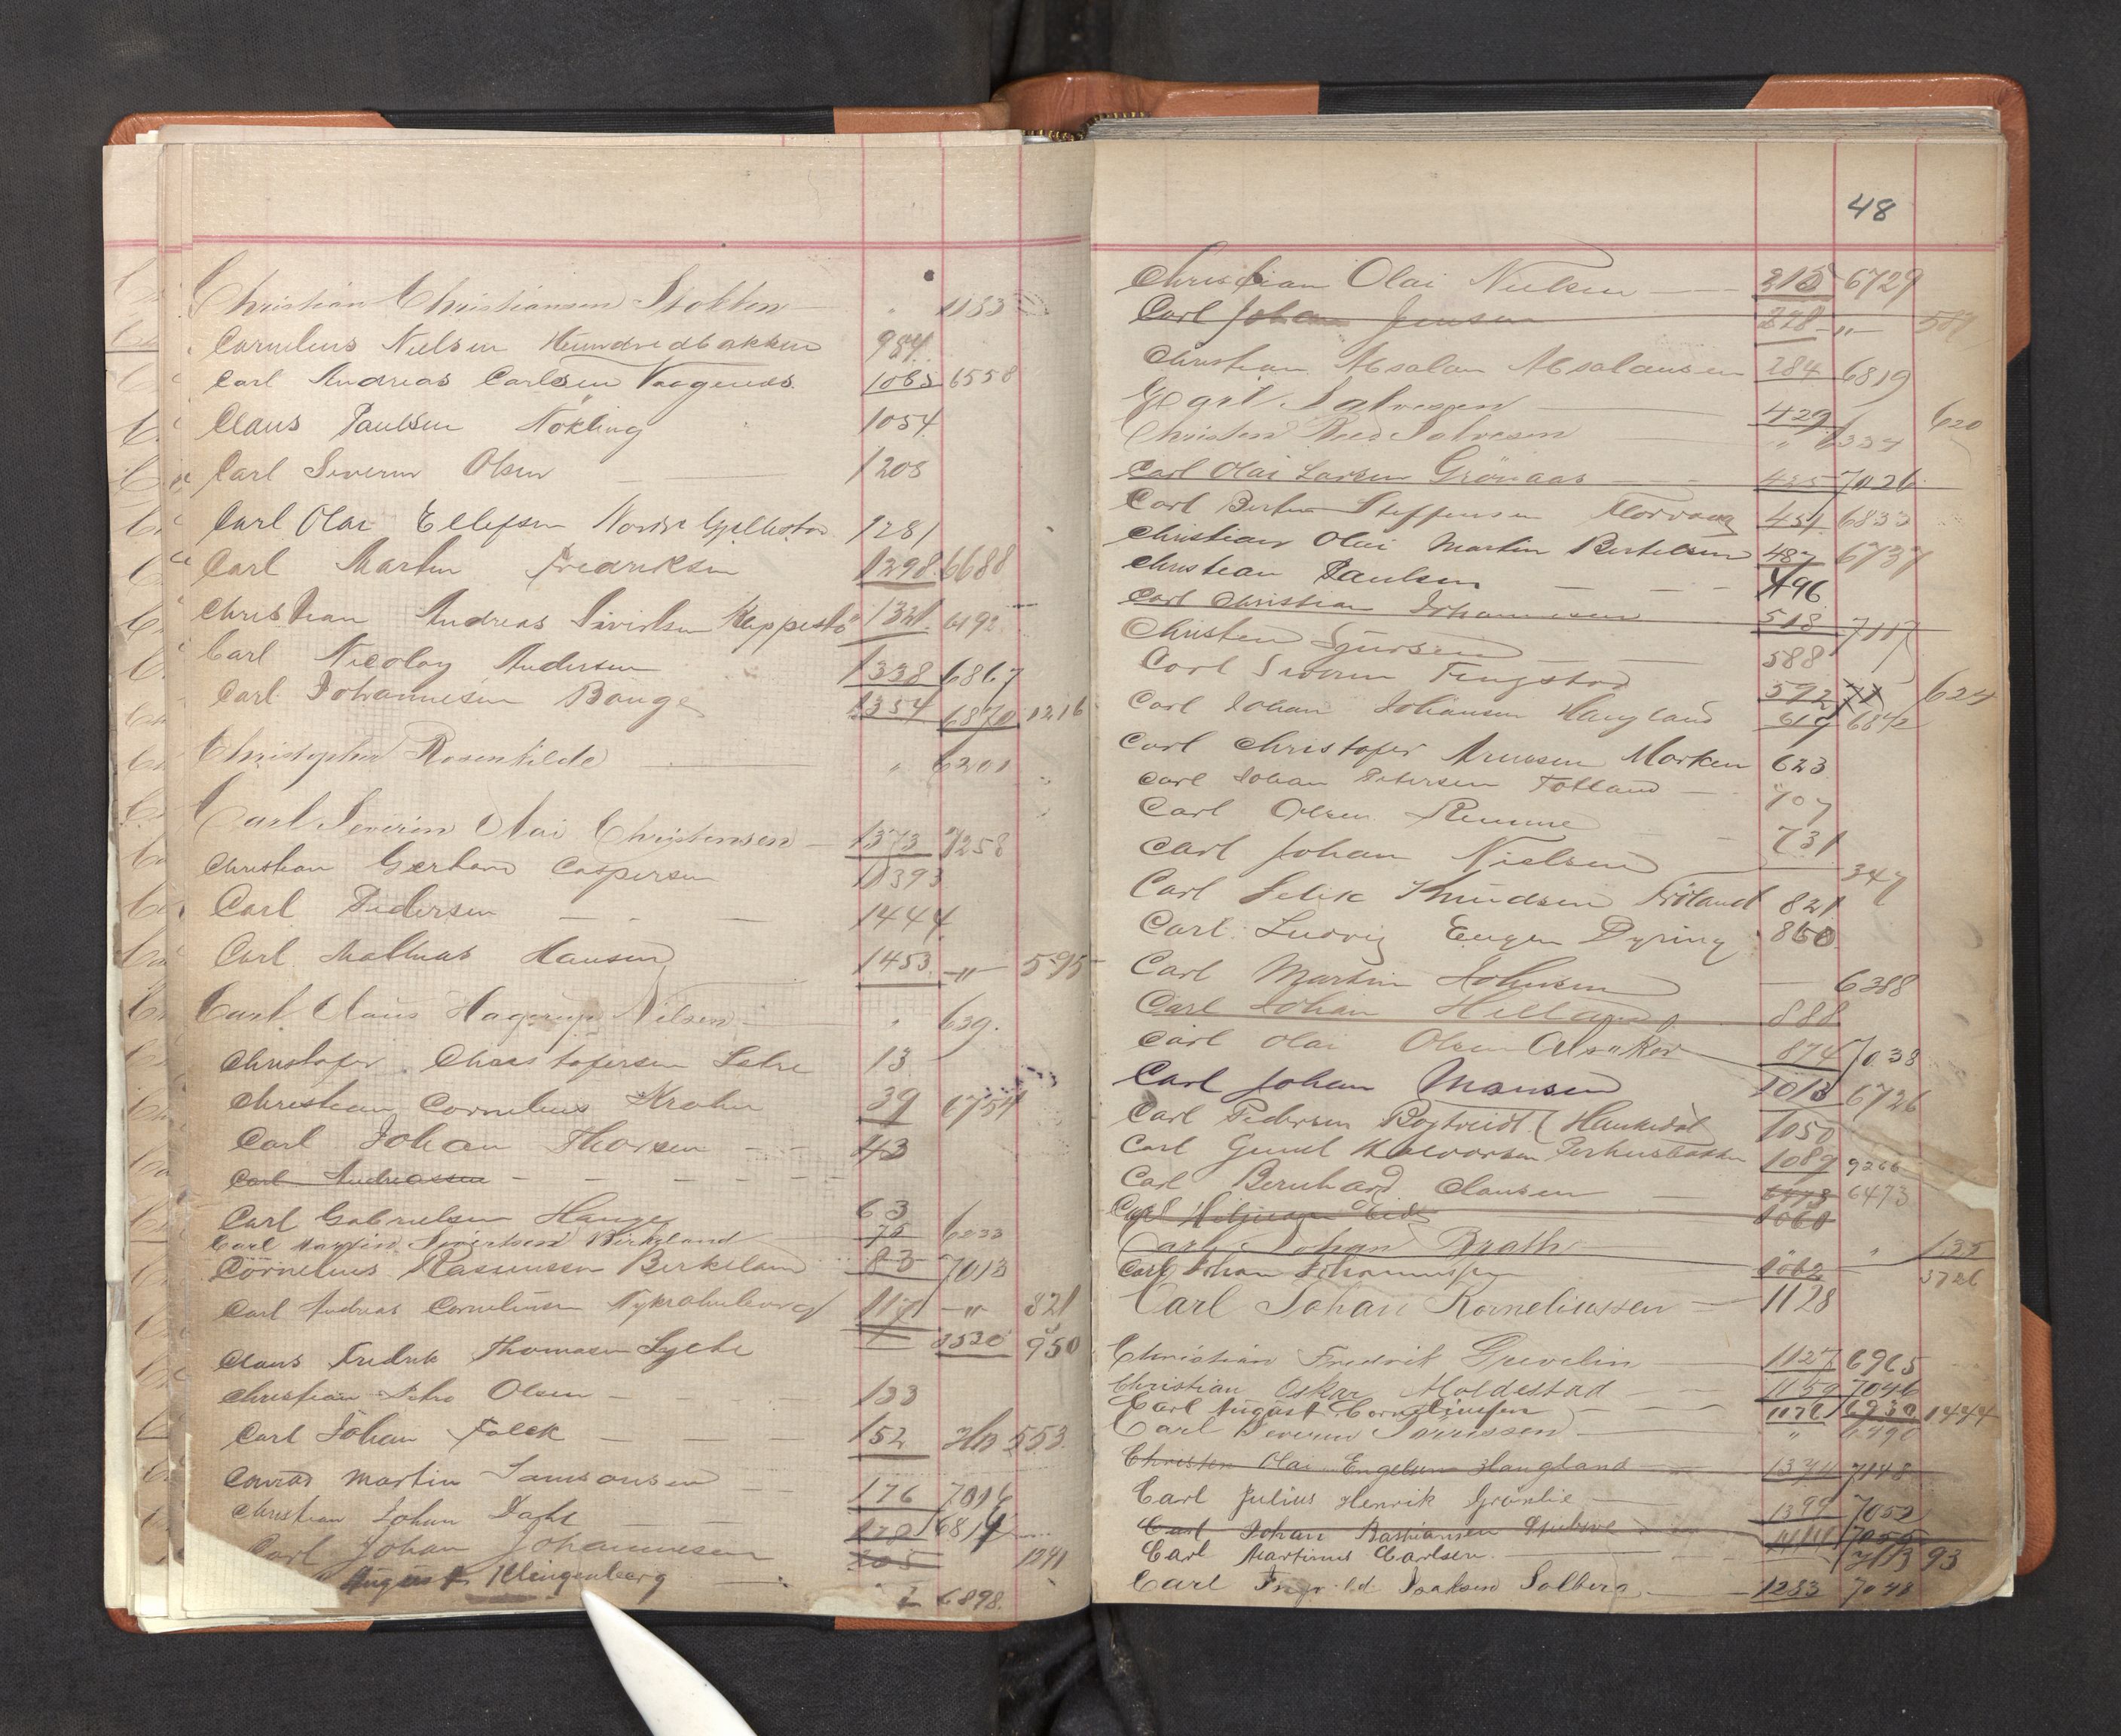 Christian Christiansen Stokken " 1183
Cornelius Nielsen Hundredbakken 984
Carl Andreas Carlsen Vaagenæs 1065 6558
Claus Paulsen Nökling 1054
Carl Severin Olsen 1205
Carl Olai Ellefsen Nordr 1281
Carl Martin Fredriksen 1298 6688
Christian Andreas Sivertsen Keppestö 1321 6192
Carl Nicolay Andersen 1338 6867
Carl Johannesen Bauge 1354 6870 1216
Christopher Rosenkilde " 6201
Carl Severin Olai Christensen 1373 7258
Christian Gerhard Caspersen 1393
Carl Pedersen 1444
Carl Mathias Hansen 1453 -"- 595
Carl Claus Hagerup Nilsen " 639
Christofer Christofersen Sætre 13
Christian Cornelius Krohn 39 6754
Carl Johan Thorsen 43
Carl Andreassen
Carl Gabrielsen Hauge 63
Carl Martin Sivertsen Birkeland 75 6233
Cornelius Rasmussen Berkeland 83 7013
Carl Andreas Corneliusen 117 -"- 821
Claus Fredrik Thomasen Lycke 3520 950
Christian Olsen 133
Carl Johan Falck 152 553
Conrad Martin Samsonsen 176 7016
Christian Johan Dahl 178 6814
Carl Johan Johannesen 205 1241
August Klingenberg 6898
48
Christian Olai Nielsen 215 6729
Carl Johan Jensen 248 -"- 587
Christian Absalon Absalonsen 284 6819
Salvesen 429 620
Christen Salvesen " 6334
Carl Olai Larsen Grönaas 435 7026
Carl Steffensen 451 6833
Christian Olai Martin Bertelsen 487 6737
Christian Paulsen 496
Carl Christian Johannesen 518 7117
Christen Sjursen 588
Carl Severin Tengstad 592 71 624
Carl Johan Johansen Haugland 617 6842
Carl Christofer Arnesen Morken 623
Carl Johan Petersen Totland 707
Carl Olsen Remme 731
Carl Johan Nielsen 347
Carl Selik Knudsen Fröland 821
Carl Ludvig Eugen Dyring 850
Carl Martin Johnsen 6388
Carl Johan Helland 888
Carl Olai Olsen 874 7038
Carl Johan Monsen 1013 6726
Carl Pedersen (Haukedal 1050
Carl Halvorsen 1089 9266
Carl Bernhard Clausen 6473
Carl Eide 1060
Carl Johan Brath " 135
Carl Johan Johannessen 1062 3726
Carl Johan Korneliussen 1128
Christian Fredrik Grevelin 1127 6965
Christian Oskar Moldestad 1159 7046
Carl August Corneliussen 1176 6930 1444
Carl Severin " 6490
Christen Olai Engelsen Haugland 1344 7148
Carl Julius Henrik Grönlie 1399 7052
Carl Johan Bastiansen 7055
Carl Martinus Carlsen 7113 93
Carl Isaksen Solberg 1233 7048